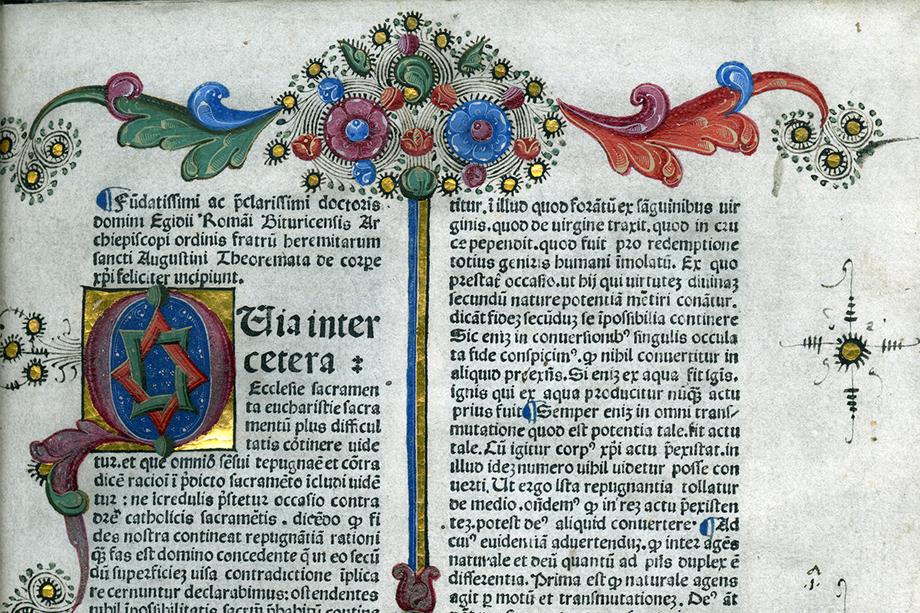 Fūdatissimi ac p̄clarissimi doctoris
domini Egidii Romāi Bituricensis Ar
chiepiscopi ordinis fratrū heremitarum
sancti Augustini Theoremata de corpe
xp̄i feliciter incipiunt.
Uia inter
cetera :
Ecclesie sacramen
ta eucharistie sacra
mentū plus difficul
tatis cōtinere uide
tur. et que omnīo sēsui repugnāe et cōtra
dicē racioī ī p̄dicto sacramēto īcludi uidē
tur : ne īcredulis p̄stetur occasio contra
catholicis sacramētis . dicēdo ꝙ fi
des nostra contineat repugnātiā rationi
fas est domino concedente in eo secū
dū superficiez uisa contradictione īplica
re cernuntur declarabimus: ostendentes
titur. ī illud quod forātū ex sāguinibus uir
ginis. quod de uirgine traxit. quod in cru
ce pependit. quod fuit pro redemptione
totius geniris humani īmolatū. Ex quo
prestat̄ occasio. ut hij qui uirtutez diuinaz
secundū nature potentiā mētiri conātur.
dicāt fidez secūduz se īpossibilia continere
Sic eniz in conuersionibꝰ singulis occula
ta fide conspicimꝰ. ꝙ nihil conuertitur in
aliquid preexn̄s. Si eniz ex aqua fit igīs.
ignis qui ex aqua producitur nūqꝫ actu
prius fuit Semper eniz in omni trans-
mutatione quod est potentia tale. fit actu
tale. Cū igitur corpꝰ xp̄i actu p̄existat. in
illud idez numero nihil uidetur posse con
uerti. Ut ergo ista repugnantia tollatur
de medio. ondemꝰ ꝙ in rez actu p̄existen
tez. potest deꝰ aliquid conuertere. Ad
cuiꝰ euidentiā aduertenduz. ꝙ inter agēs
naturale et deū quantū ad p̄ns duplex ē
differentia. Prima est ꝙ naturale agens
agit ꝑ motū et transmutationez. Deꝰ āt